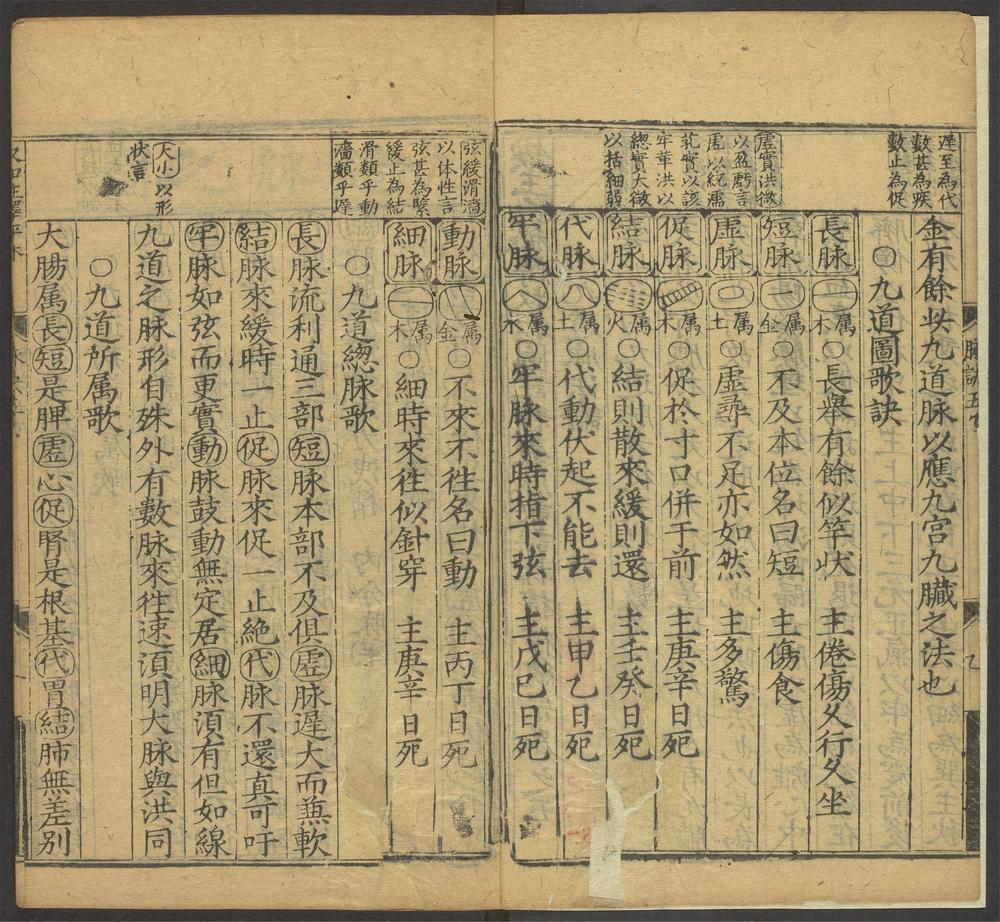 遲至為代
數甚為疾
數止為促
虛實洪微
以盈虧言
虛以統濡
芤實以該
牢革洪以
總實大微
以括細弱
金有餘此九道脉以應九宮九臟之法也
○九道圖歌訣
長脉 属木 ○長舉有餘似竿狀 主倦傷久行久坐
短脉 属金 ○不及本位名曰短 主傷食
虛脉 属土 ○虛尋不足亦如然 主多驚
促脉 属木 ○促於寸口併于前 主庚辛日死
結脉 属火 ○結則散來緩則還 主壬癸日死
代脉 属土 ○代動伏起不能去 主甲乙日死
牢脉 属水 ○牢脉來時指下弦 主戊巳日死
脉訣五
七
弦緩滑濇
以体性言
弦甚為緊
緩止為結
滑類乎動
濇類乎遲
大小以形
狀言
動脉 属金 ○不來不徃名曰動 主丙丁日死
細脉 属木 ○細時來徃似針穿 主庚辛日死
○九道總脉歌
長脉流利通三部短脉本部不及俱虛脉遲大而蕪軟
結脉來緩時一止促脉來促一止絶代脉不還真可吁
牢脉如弦而更實動脉鼓動無定居細脉湏有但如線
九道之脉形自殊外有數脉來徃速湏明大脉與洪同
○九道所属歌
大腸属長短是脾虛心促腎是根基代胃結肺無差別